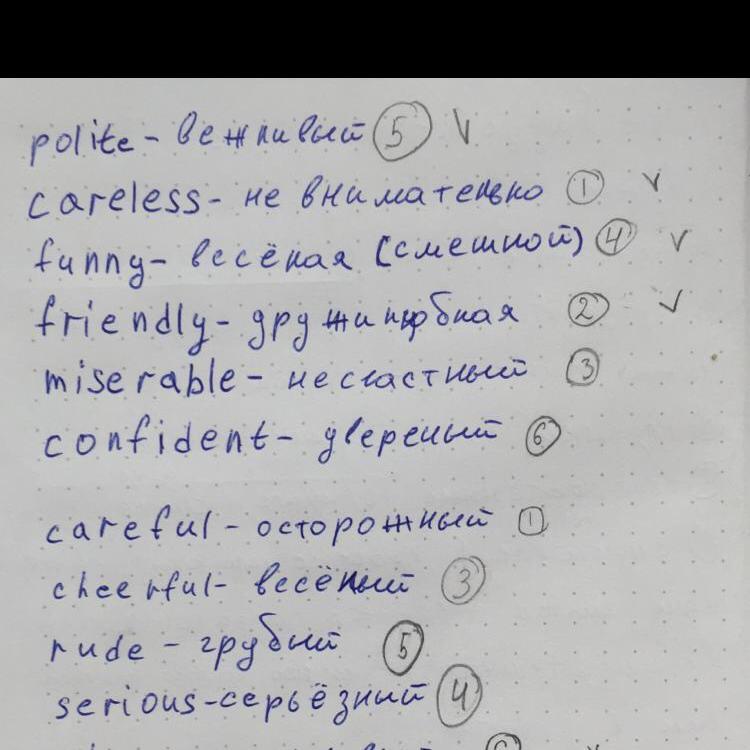 polite - вежливый 5 V
careless - не внимательно 1 V
funny - весёлая (смешной) 4 V
friendly - дружилюбная 2 V
miserable - несчастный 3
confident - увереный 6
careful - осторожный 1
cheerful - весёлый 3
rude - грубый 5
serious - серьёзный 4